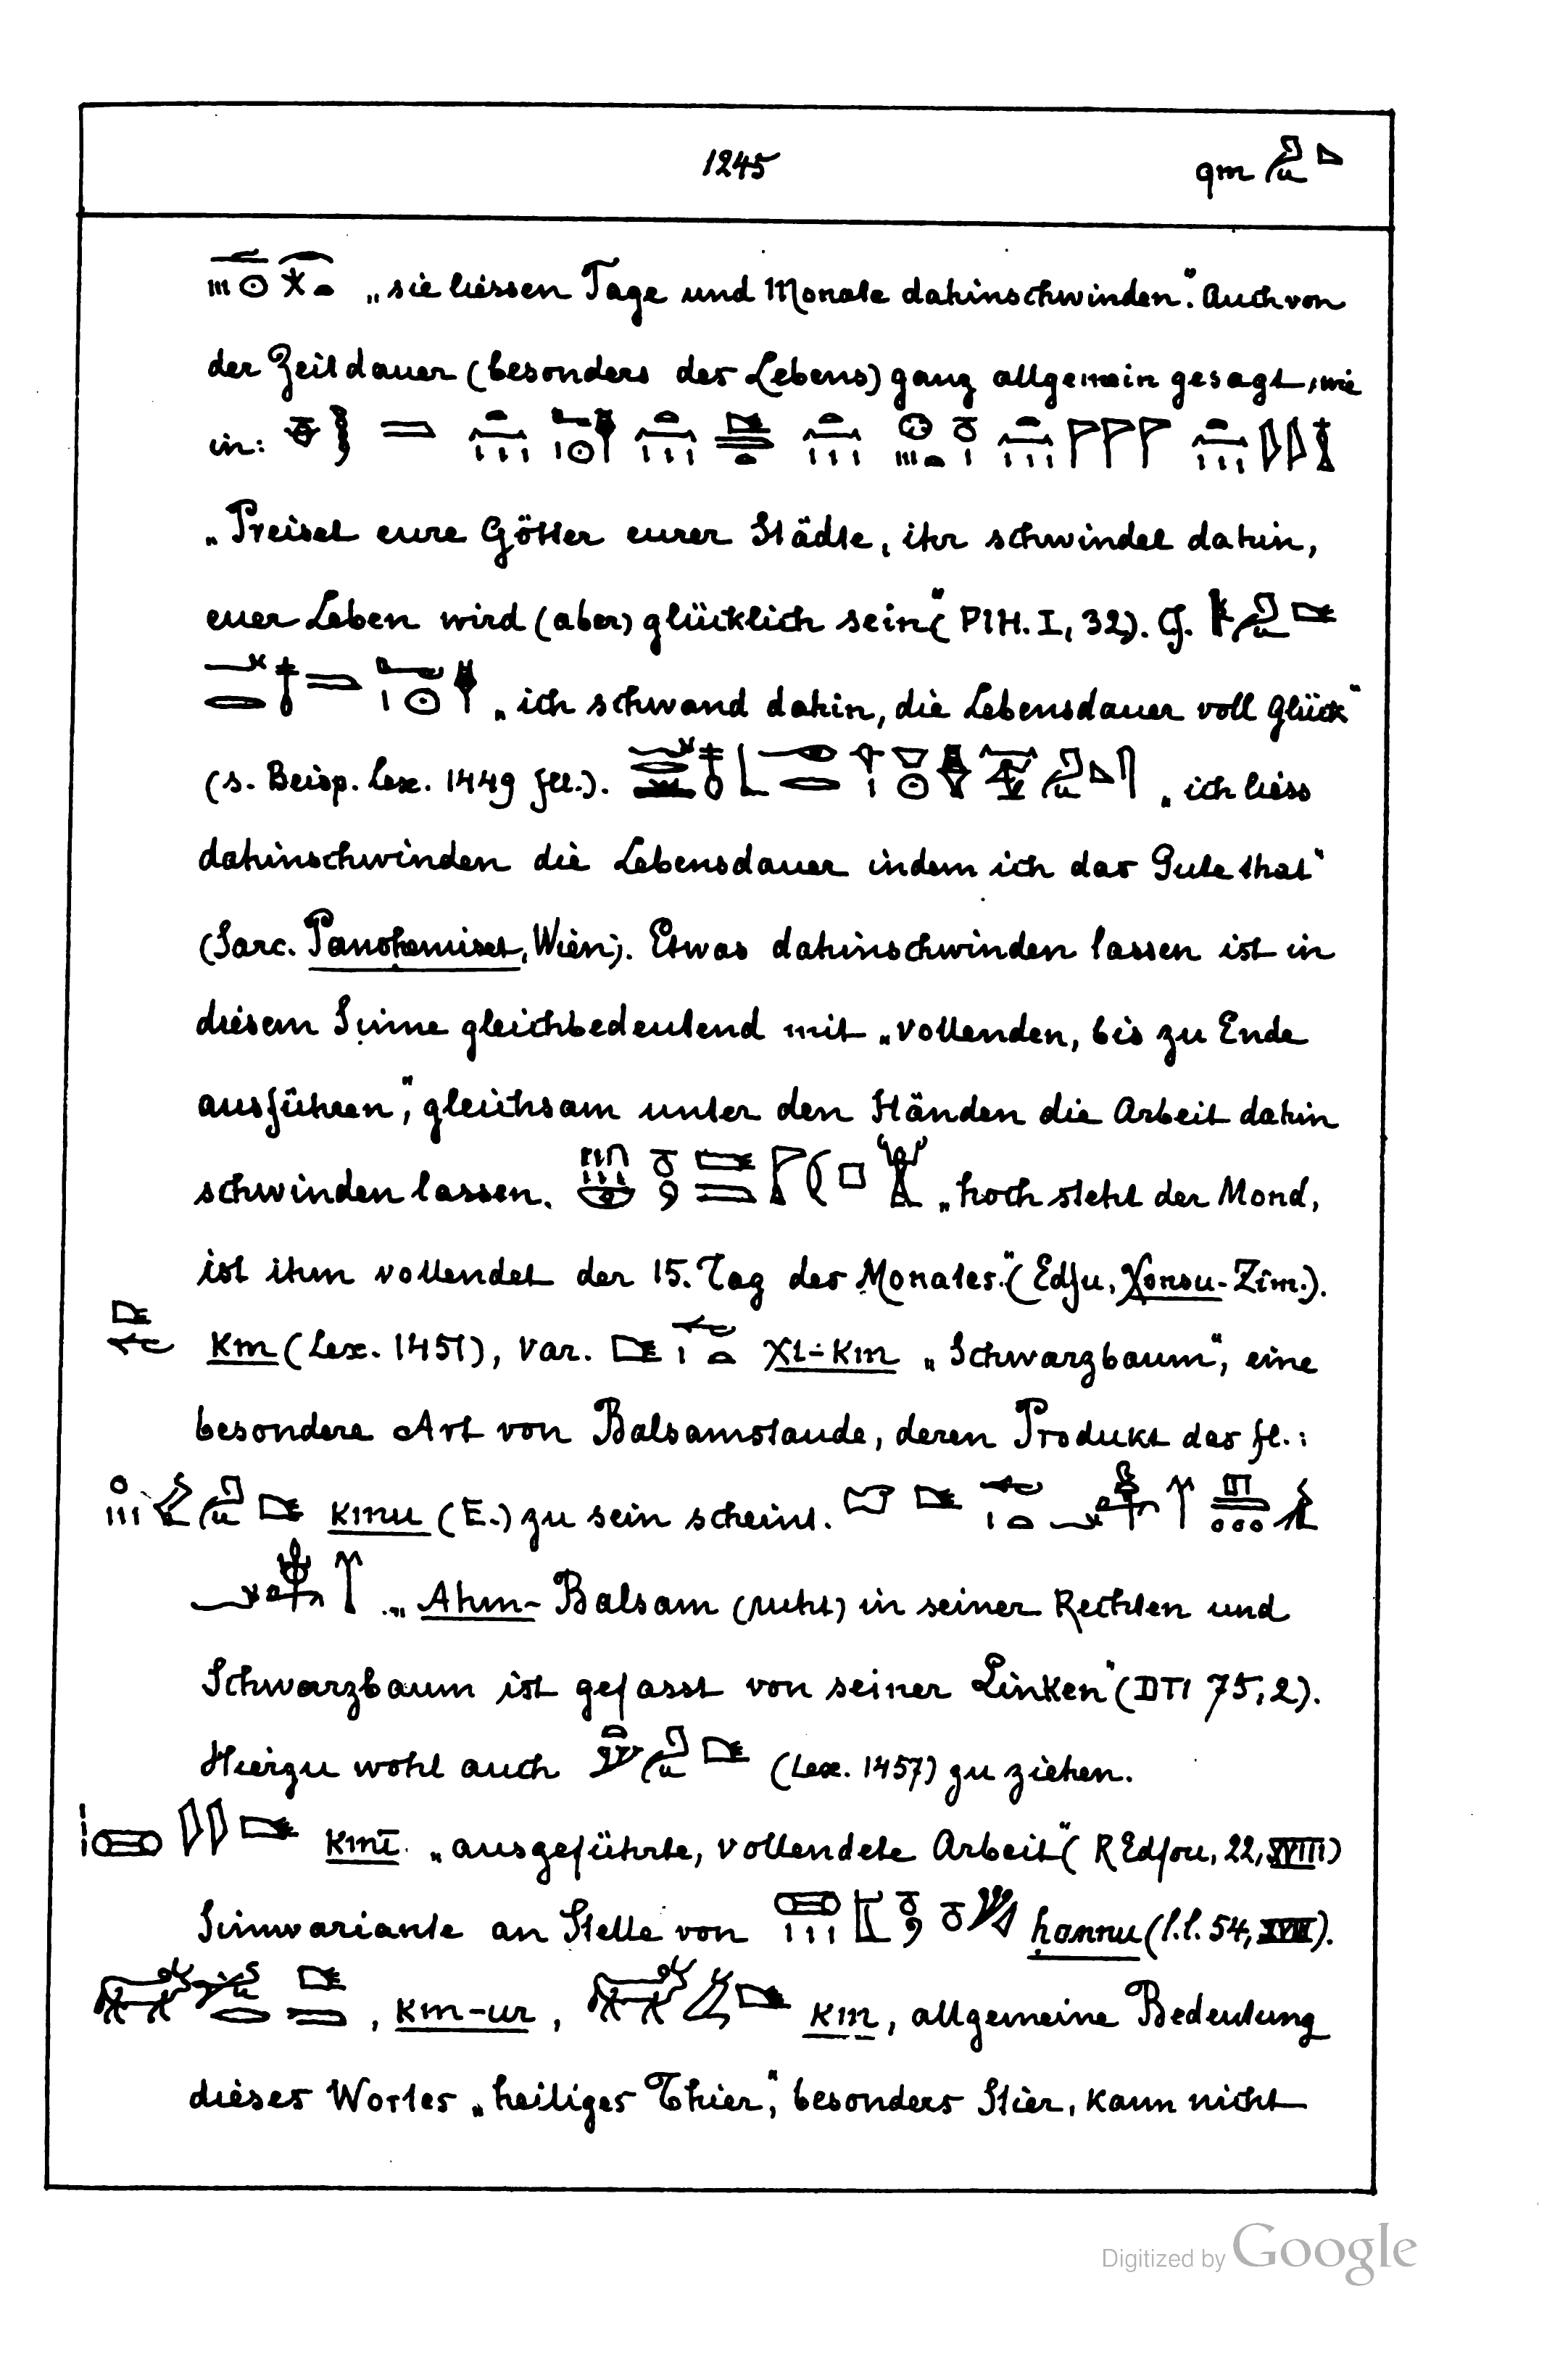 1245 qm
„sie liessen Tage und Monate dahinschwinden“. Auch von
der Zeitdauer (besonders des Lebens) ganz allgemein gesagt, wie
in:
„Preiset eure Götter eurer Städte, ihr schwindet dahin,
euer Leben wird (aber) glücklich sein“ (PIH. I, 32). Cf.
„ich schwand dahin, die Lebensdauer voll Glück“
(s. Beisp. Lex. 1449 fll.). „ich liess
dahinschwinden die Lebensdauer indem ich das Gute that“
(Sarc. Panohemiset, Wien). Etwas dahinschwinden lassen ist in
diesem Sinne gleichbedeutend mit „vollenden, bis zu Ende
ausführen“, gleichsam unter den Händen die Arbeit dahin
schwinden lassen. „hoch steht der Mond,
ist ihm vollendet der 15. Tag des Monates“. (Edfu, Χonsu-Zim.).
Km (Lex. 1451), Var. χt-Km „Schwarzbaum“, eine
besondere Art von Balsamstaude, deren Produkt das fl.:
kmu (E.) zu sein scheint.
„Ahm-Balsam (ruht) in seiner Rechten und
Schwarzbaum ist gefasst von seiner Linken“ (DTI 75, 2).
Hierzu wohl auch (Lex. 1457) zu ziehen.
kmī. „ausgeführte, vollendete Arbeit“ (R Edfou, 22, XVIII)
Sinnvariante an Stelle von ḥannu (l.l. 54, XVII).
, km-ur, km, allgemeine Bedeutung
dieses Wortes „heiliges Thier“, besonders Stier, kann nicht
Digitized by Google